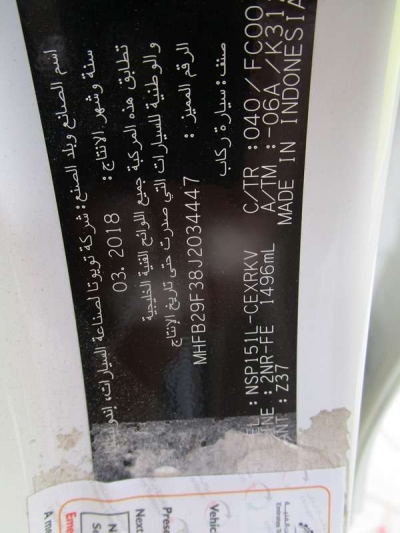 اسم الصانع وبلد الصنع: شركة تويوتا لصناعة السيارات،
سنة وشهر الإنتاج: 03. 2018
تطابق هذه المركبة جميع اللوائح الفنية الخليجية
والوطنية للسيارات التي صدرت حتى تاريخ الإنتاج
الرقم المميز: MHFB29F38J2034447
صنف: سيارة ركاب
NSP151L-CEXRKV C/TR :040 / FC00
: 2NR-FE 1496mL A/TM :-06A /K31
: Z37 MADE IN INDONESIA
Vehic
Prese
Next
N
A m